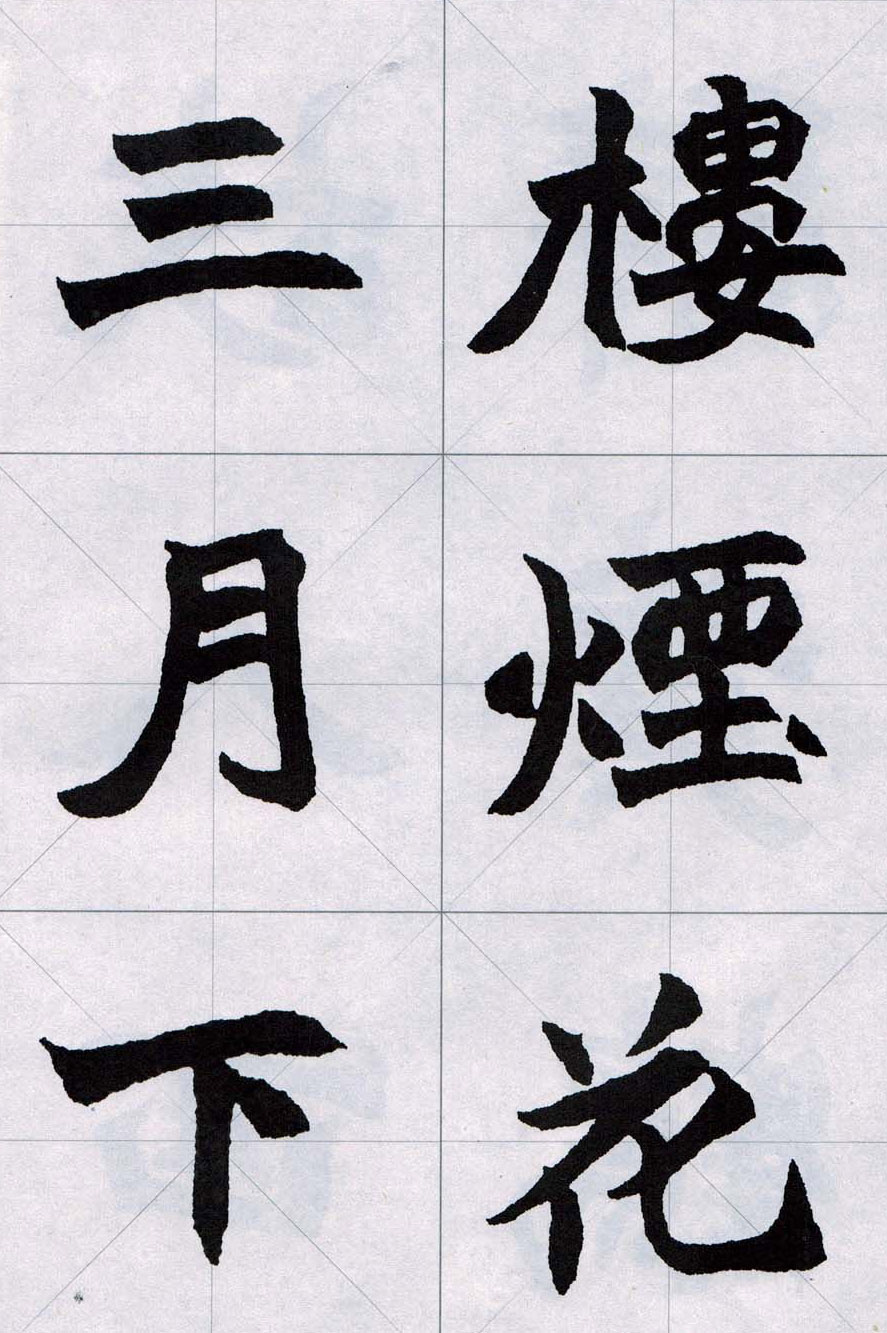 樓煙花
三月下